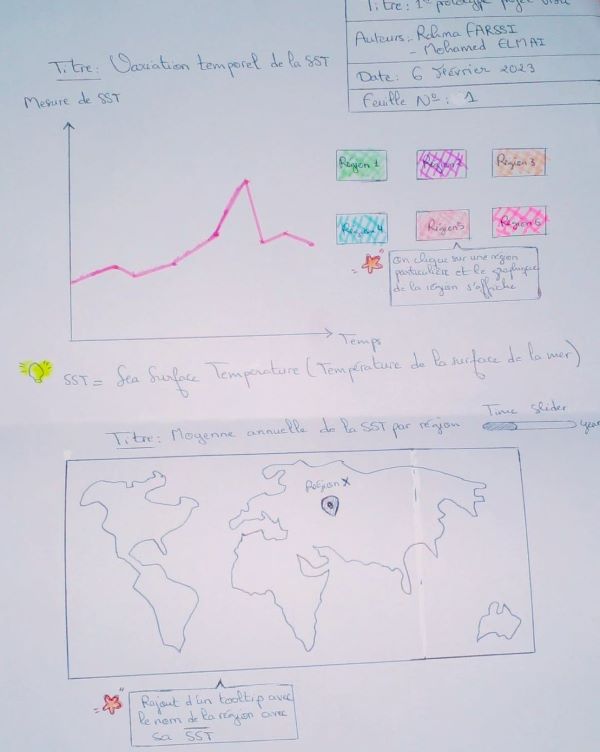 Titre: 1er prototype projet visu
Auteurs:- Rahma FARSSI
- Mohamed ELMAI
Date: 6 Février 2023
Feuille N°: 1
Titre: Variation temporel de la SST
Mesure de SST
Région 1 Région 2 Région 3
Région 4 Région 5 Région 6
On clique sur une région
particulière et le graphique
de la région s'affiche
Temps
SST = Sea Surface Temperature (Température de la surface de la mer)
Titre: Moyenne annuelle de la SST par région
Time slider
year
Région X
Rajout d'un tooltip avec
le nom de la région avec
sa SST